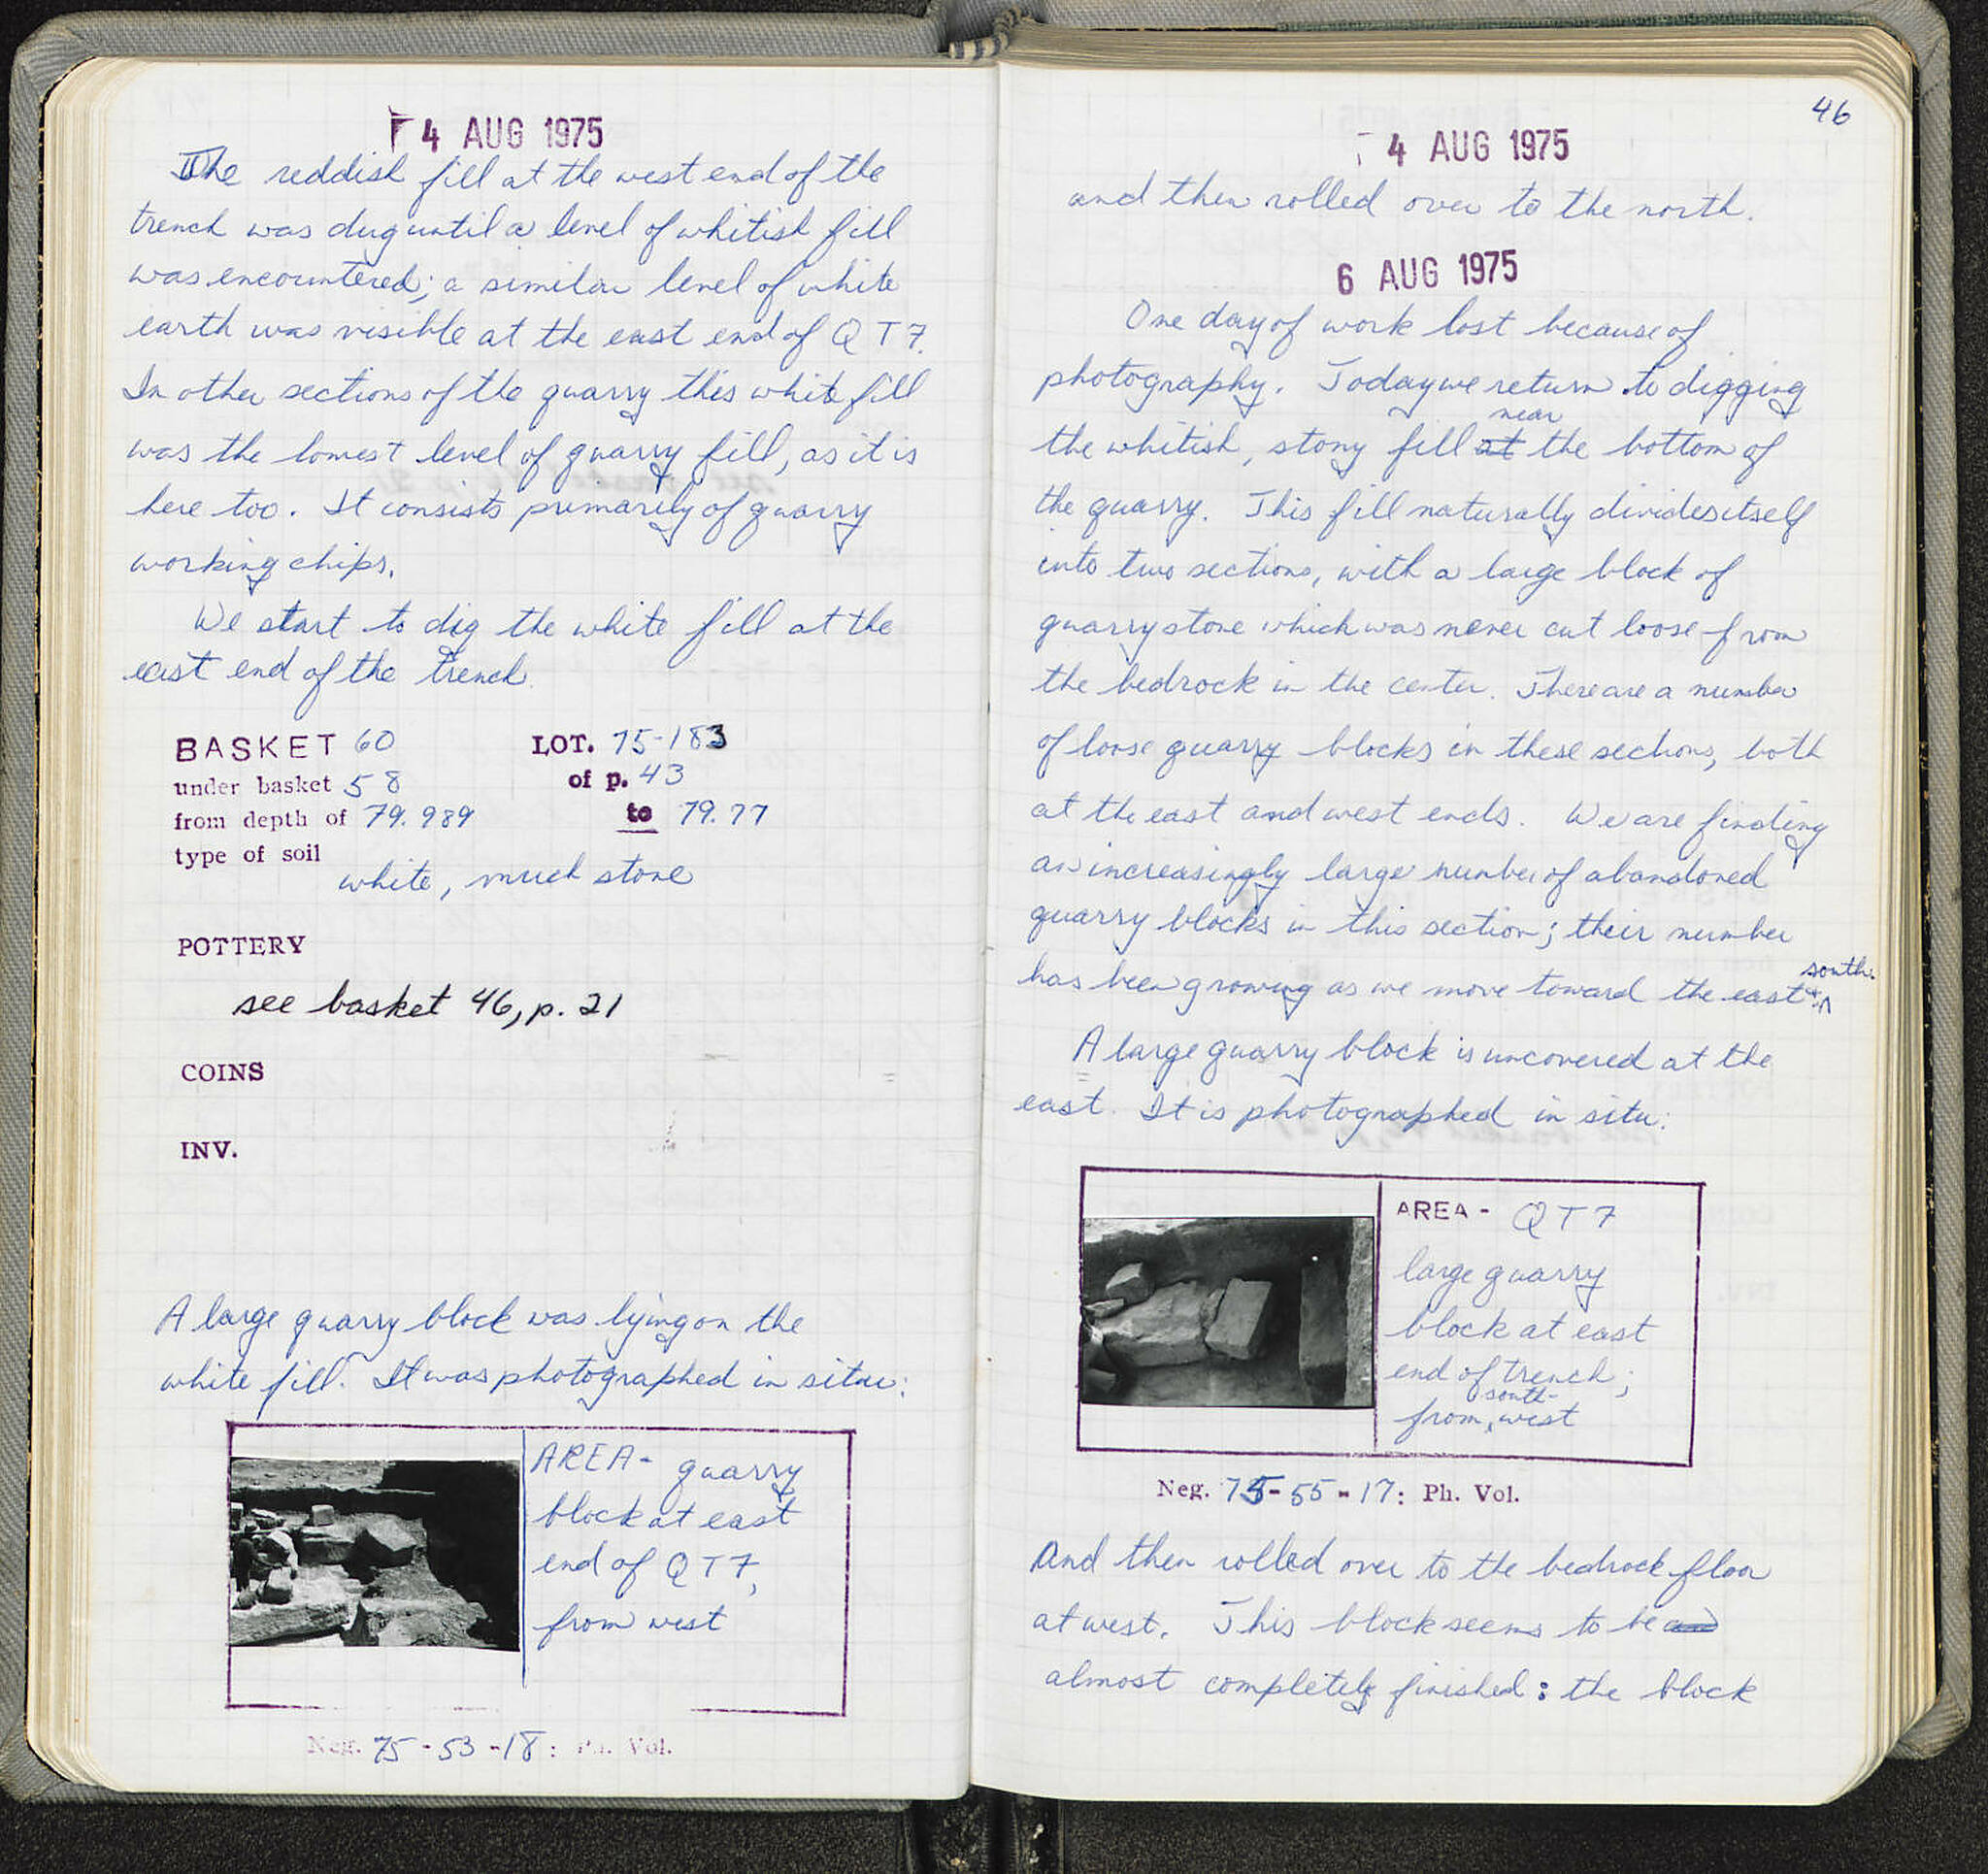 4 AUG 1975
The reddish fill at the west end of the
trench was dug until a level of whitish fill
was encountered; a similar level of white
earth was visible at the east end of QT7.
In other sections of the quarry this white fill
was the lowest level of quarry fill, as it is
here too. It consists primarily of quarry
working chips.
We start to dig the white fill at the
east end of the trench.
BASKET 60 LOT. 75-183
under basket 58 of p. 43
from depth of 79.989 to 79.77
type of soil
white, much stone
POTTERY
see basket 46, p. 21
COINS
INV.
A large quarry block was lying on the
white fill. It was photographed in situ:
AREA- quarry
block at east
end of QT7,
from west
Neg. 75-53-18: Ph. Vol.
46
4 AUG 1975
and then rolled over to the north.
6 AUG 1975
One day of work lost because of
photography. Today we return to digging
near
the whitish, stony fill at the bottom of
the quarry. This fill naturally divides itself
into two sections, with a large block of
quarry stone which was never cut loose from
the bedrock in the center. There are a number
of loose quarry blocks in these sections, both
at the east and west ends. We are finding
an increasingly large number of abandoned
quarry blocks in this section; their number
south.
has been growing as we move toward the east +
A large quarry block is uncovered at the
east. It is photographed in situ:
AREA- QT7
large quarry
block at east
end of trench;
south-
from west
Neg. 75-55-17: Ph. Vol.
And then rolled over to the bedrock floor
at west. This block seems to be
almost completely finished: the block